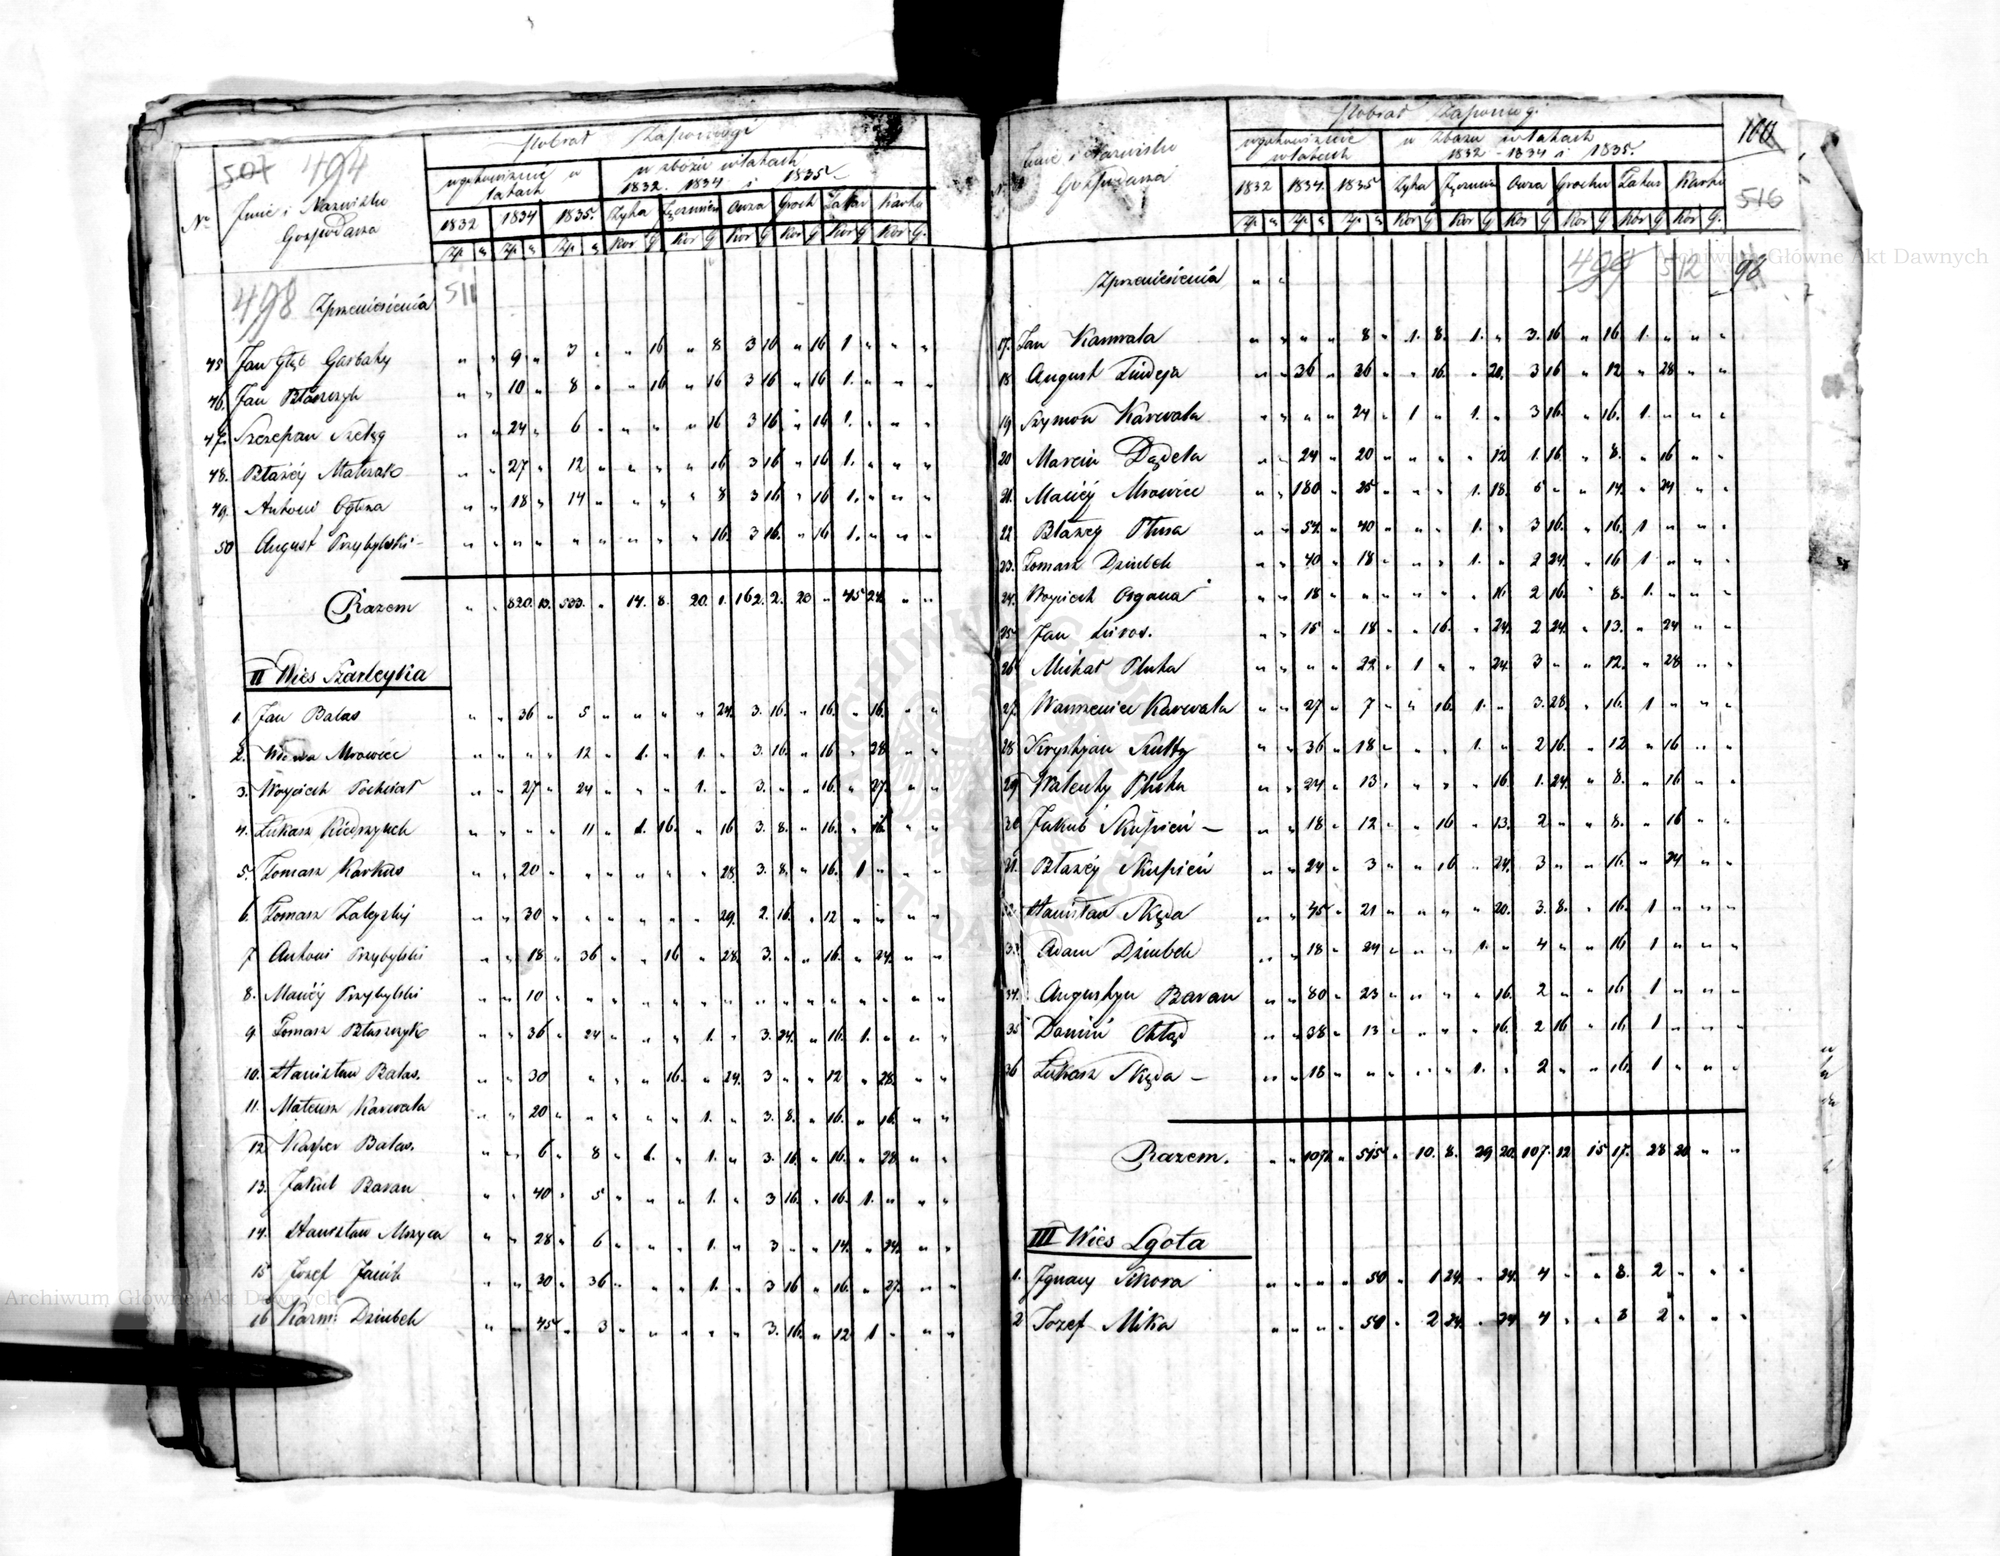 507 494
Pobrał Zapomogi
w gotowiznie w latach
w zbożu w latach
1832. 1834 i 1835
N° Imie i Nazwisko Gospodarza
1832 1834 1835. Żyta Jęczmien Owsa Groch Tatar Kartu
Zp " Zp " Zp " Kor G Kor G Kor G Kor G Kor G Kor G.
498 Zprzeniesienia 511
45 Jan Głąb Garbaty " " 9 " 3 " " 16 " 8 3 16 " 16 1 " " "
46. Jan Błaszczyk " " 10 " 8 " " 16 " 16 3 16 " 16 1. " " "
47. Szczepan Szeląg " " 24 " 6 " " " " 16 3 16 " 16 1. " " "
48. Błażéy Matusak " " 27 " 12 " " " " 16 3 16 " 16 1. " " "
49. Antoni Ogłoza " " 18 " 14 " " " " 8 3 16 " 16 1. " " "
50 August Przybylski " " " " " " " " " 16. 3 16. " 16 1. " " "
Razem " " 820. 13. 533. " 14. 8. 20. 1. 162. 2. 20 " 45 24 " "
II Wieś Szarleyka
1. Jan Balas " " 36 " 5 " " " " 24. 3. 16. " 16. " 16. " "
2. Mrowiec " " " " 12 " 1. " 1. " 3. 16. " 16 " 28 " "
3. Woyciech Pochciał " " 27 " 24 " " " 1. " 3. " " 16. " 27. " "
4. Łukasz Kiedrzyuch " " " " 11 " 1. 16. " 16 3. 8. " 16. " 16. " "
5. Tomasz Karkus " " 20 " " " " " " 28. 3. 8. " 16. 1 " " "
6. Tomasz Zaleyski " " 30 " " " " " " 29. 2. 16. " 12 " " " "
7 Antoni Przybylski " " 18 " 36 " " 16 " 28. 3. " " 16. " 24. " "
8. Maciéy Przybylski " " 10 " " " " " " " " " " " " " " "
9. Tomasz Błaszczyk " " 36 " 24 " " " 1. " 3. 24. " 16. 1. " " "
10. Stanisław Balas. " " 30 " " " 16. " 24. 3 " " 12 " 28. " "
11. Mateusz Karwala " " 20 " " " " " 1. " 3. 8. " 16. " 16. " "
12. Kasper Balas. " " 6 " 8 " 1. " 1. " 3. 16. " 16. " 28 " "
13. Jakub Baran " " 40 " 5 " " " 1. " 3 16. " 16. 1. " " "
14. Stanisław Mszyca " " 28 " 6 " " " 1. " 3 " " 14. " 24. " "
15 Jozef Janik " " 30 " 36 " " " 1. " 3 16 " 16. " 27. " "
16 Kazm: Dziubek " " 45 " 3 " " " " " 3. 16. " 12 1 " " "
Pobrał Zapomogi
100
516
Imie i Nazwisko Gospodarza
w gotowiznie w latach
w zbożu w latach 1832 - 1834 i 1835.
1832 1834. 1835 Żyta Jęczmien Owsa Grochu Tatar Kartu
Zp " Zp " Zp " Kor G Kor G Kor G Kor G Kor G Kor G.
499 512 98
Zprzeniesienia " "
17. Jan Karwala " " " " 8 " 1. 8. 1. " 3. 16 " 16 1. " " "
18 August Lindeja " " 36 " 36 " " 16. " 20. 3 16 " 12 " 28 " "
19 Szymon Karwala " " " " 24 " 1 " 1. " 3 16. " 16. 1. " " "
20 Marcin Dądela " " 24 " 20 " " " " 12 1. 16. " 8. " 16 " "
21. Maciéy Mrowiec " " 180 " 25 " " " 1. 18. 5 " " 14. " 24 " "
22 Błażey Płusa " " 54 " 40 " " " 1. " 3 16. " 16. 1 " " "
23. Tomasz Dziubek " " 40 " 18 " " " 1. " 2 24. " 16 1 " " "
24. Woyciech Organa " " 18 " " " " " " 16. 2 16. " 8. 1. " " "
25 Jan Luros. " " 15 " 18 " " 16. " 24. 2 24. " 13. " 24 " "
26 Michał Pluta " " " " 22 " 1 " " 24. 3 " " 12. " 28 " "
27. Wawrzeniec Karwala " " 27 " 7 " " 16. 1. " 3. 28. " 16. 1 " " "
28 Krystyan Szulty " " 36 " 18 " " " 1. " 2 16. " 12 " 16 " "
29. Walenty Pluta " " 24 " 13 " " " " 16 1. 24. " 8. " 16 " "
30 Jakub Skupień " " 18 " 12 " " 16 " 13. 2 " " 8. " 16 " "
31. Błażéy Skupień " " 24 " 3 " " 16 " 24. 3 " " 16. " 24 " "
32. Stanisław Skęda " " 45 " 21 " " " " 20. 3. 8. " 16. 1 " " "
33 Adam Dziubek " " 18 " 24 " " " 1. " 4 " " 16 1 " " "
34. Augustyn Baran " " 80 " 23 " " " " 16. 2 " " 16 1 " " "
35 Damin Chłąd " " 38 " 13 " " " " 16. 2 16 " 16. 1 " " "
36 Łukasz Skęda " " 18 " " " " " 1. " 2 " " 16. 1 " " "
Razem. " " 1072 " 515 " 10. 8. 29 20. 107. 12 15 17. 28 20 " "
III Wieś Lgota
1. Ignacy Sikora " " " " 50 " 1 24. " 24. 4 " " 8. 2 " " "
2 Jozef Mika " " " " 50 " 2 24. " 24 4 " " 8 2 " " "
Archiwum Główne Akt Dawnych
Archiwum Główne Akt Dawnych